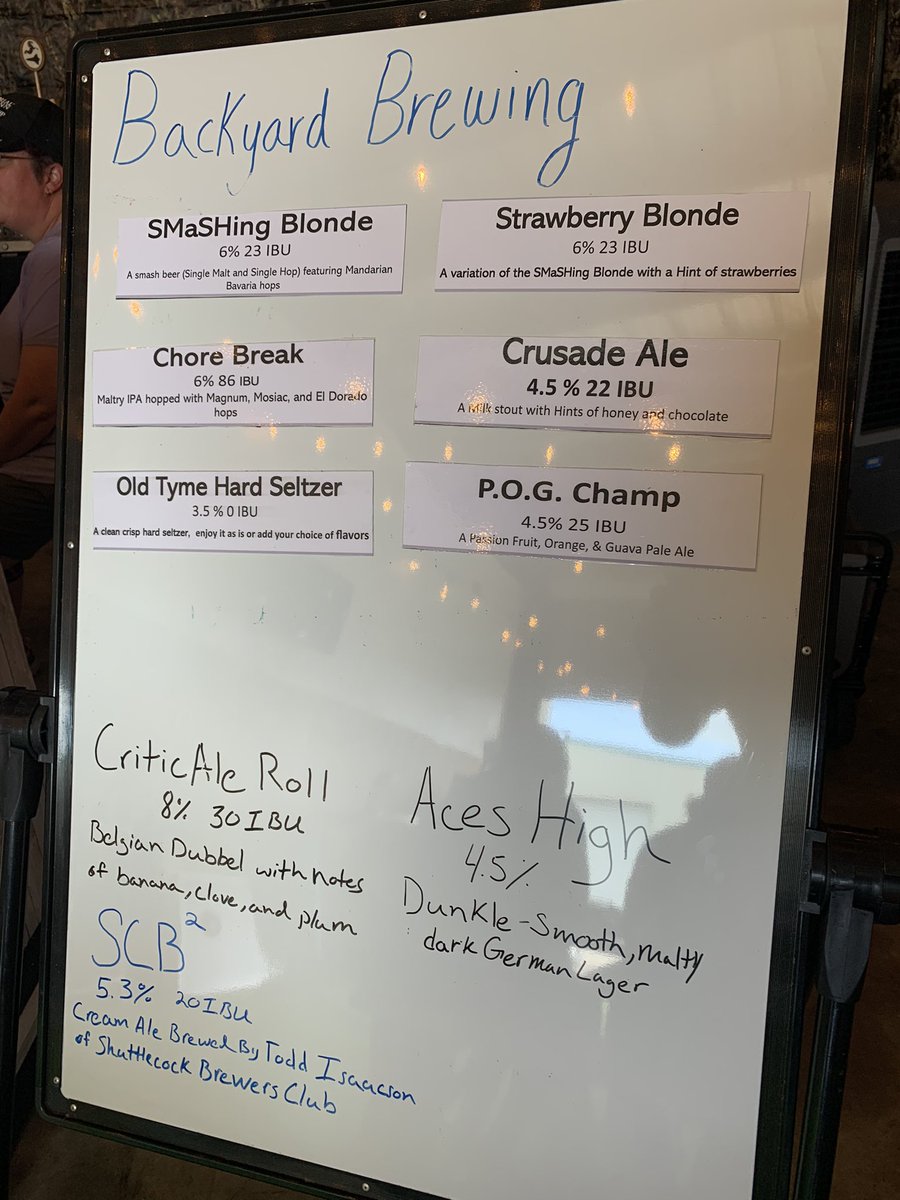 Backyard Brewing
SMaSHing Blonde
6% 23 IBU
A smash beer (Single Malt and Single Hop) featuring Mandarian
Bavaria hops
Strawberry Blonde
6% 23 IBU
A variation of the SMaSHing Blonde with a Hint of strawberries
Chore Break
6% 86 IBU
Maltry IPA hopped with Magnum, Mosiac, and El Dorado
hops
Crusade Ale
4.5 % 22 IBU
A Milk stout with Hints of honey and chocolate
Old Tyme Hard Seltzer
3.5 % 0 IBU
A clean crisp hard seltzer, enjoy it as is or add your choice of flavors
P.O.G. Champ
4.5% 25 IBU
A Passion Fruit, Orange, & Guava Pale Ale
CriticAle Roll
8% 30 IBU
Belgian Dubbel with notes
of banana, clove, and plum
Aces High
4.5%
Dunkle-Smooth, malty
dark German Lager
SCB²
5.3% 20 IBU
Cream Ale Brewed By Todd Isaacson
of Shuttlecock Brewers Club